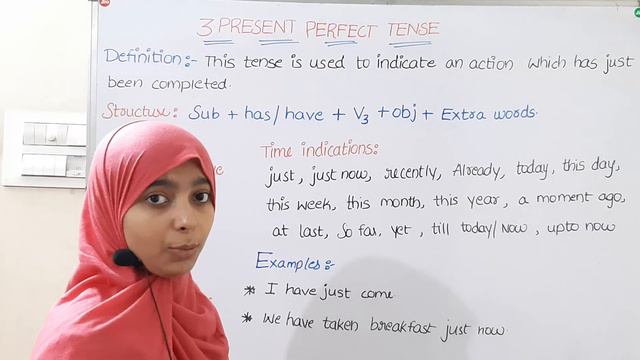 3 PRESENT PERFECT TENSE
Definition:- This tense is used to indicate an action which has just
been completed.
Structure: Sub + has/have + V3 + obj + Extra words.
Time indications:
just, just now, recently, Already, today, this day,
this week, this month, this year, a moment ago,
at last, So far, yet, till today/Now, upto now
Examples:-
* I have just come.
* We have taken breakfast just now.